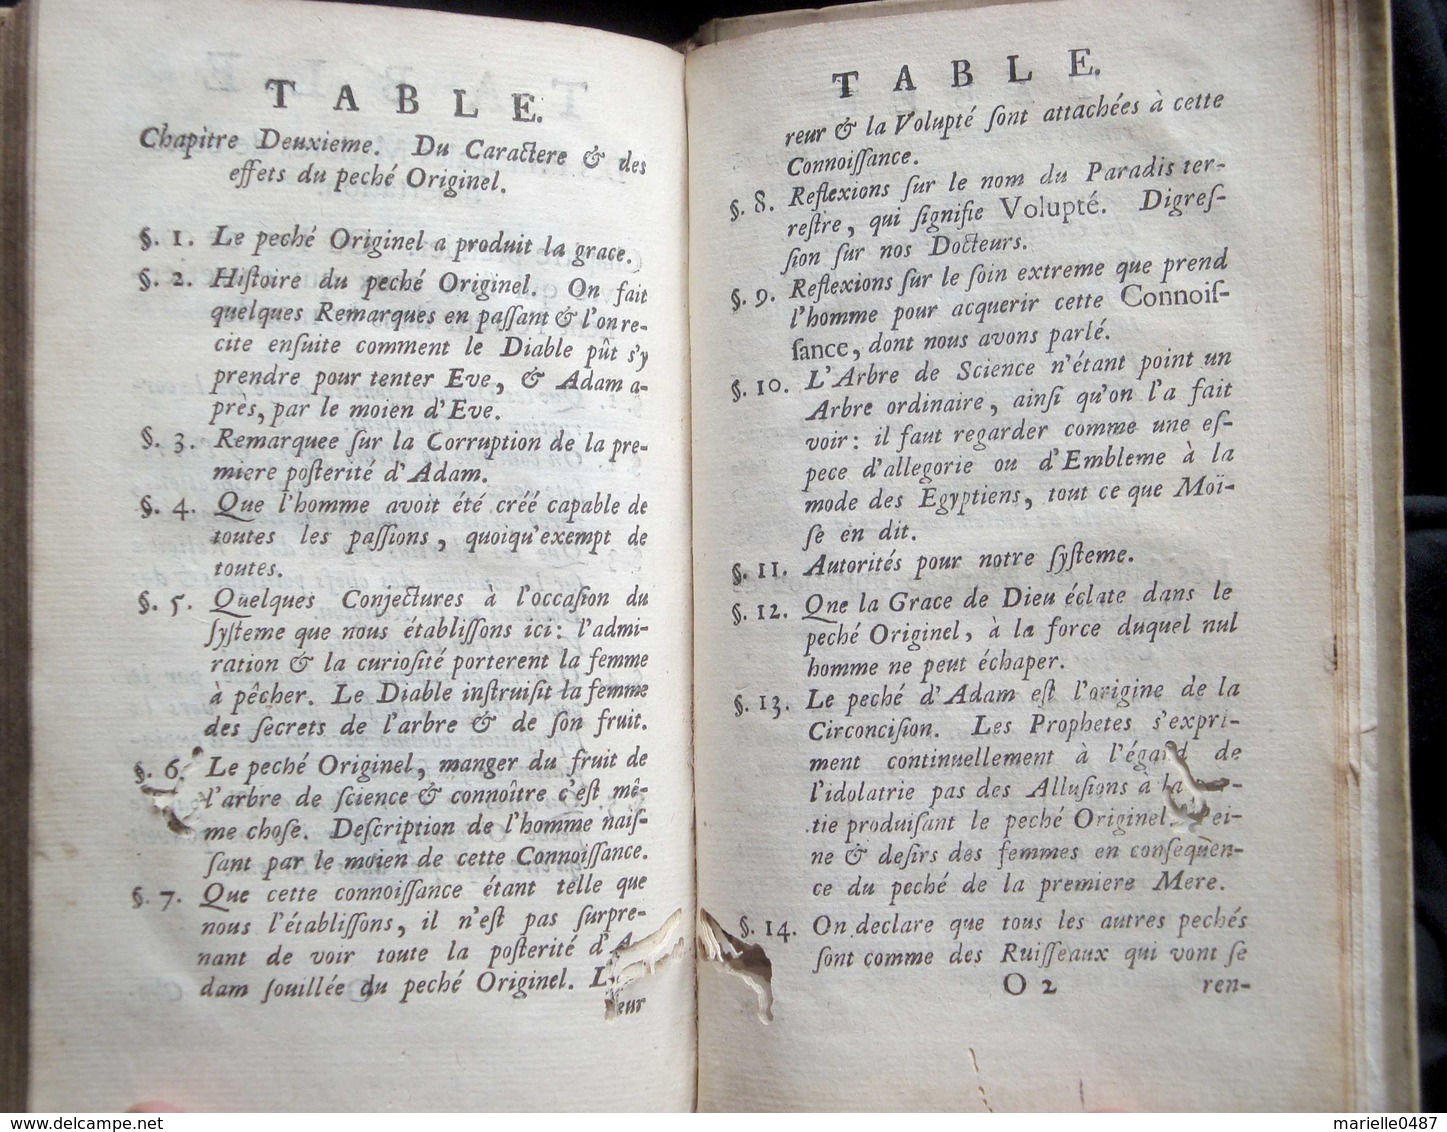 TABLE.
Chapitre Deuxieme. Du Caractere & des
effets du peché Originel.
§. 1. Le peché Originel a produit la grace.
§. 2. Hiſtoire du peché Originel. On fait
quelques Remarques en paſſant & l'on re-
cite enſuite comment le Diable pût s'y
prendre pour tenter Eve, & Adam a-
près, par le moien d'Eve.
§. 3. Remarquee ſur la Corruption de la pre-
miere poſterité d'Adam.
§. 4. Que l'homme avoit été créé capable de
toutes les paſſions, quoiqu'exempt de
toutes.
§. 5. Quelques Conjectures à l'occaſion du
ſyſteme que nous établiſſons ici: l'admi-
ration & la curioſité porterent la femme
à pêcher. Le Diable inſtruiſit la femme
des ſecrets de l'arbre & de ſon fruit.
§. 6. Le peché Originel, manger du fruit de
l'arbre de ſcience & connoître c'eſt mê-
me choſe. Deſcription de l'homme naiſ-
ſant par le moien de cette Connoiſſance.
§. 7. Que cette connoiſſance étant telle que
nous l'établiſſons, il n'eſt pas ſurpre-
nant de voir toute la poſterité d'A-
dam ſouillée du peché Originel.
TABLE.
reur & la Volupté ſont attachées à cette
Connoiſſance.
§. 8. Reflexions ſur le nom du Paradis ter-
reſtre, qui ſignifie Volupté. Digreſ-
ſion ſur nos Docteurs.
§. 9. Reflexions ſur le ſoin extreme que prend
l'homme pour acquerir cette Connoiſ-
ſance, dont nous avons parlé.
§. 10. L'Arbre de Science n'étant point un
Arbre ordinaire, ainſi qu'on l'a fait
voir: il faut regarder comme une eſ-
pece d'allegorie ou d'Embleme à la
mode des Egyptiens, tout ce que Moï-
ſe en dit.
§. 11. Autorités pour notre ſyſteme.
§. 12. Qne la Grace de Dieu éclate dans le
peché Originel, à la force duquel nul
homme ne peut échaper.
§. 13. Le peché d'Adam eſt l'origine de la
Circonciſion. Les Prophetes s'expri-
ment continuellement à l'égard de
l'idolatrie pas des Alluſions à la
tie produiſant le peché Originel.
ne & deſirs des femmes en conſequen-
ce du peché de la premiere Mere.
§. 14. On declare que tous les autres pechés
ſont comme des Ruiſſeaux qui vont ſe
O 2 ren-
www.delcampe.net
marielle0487